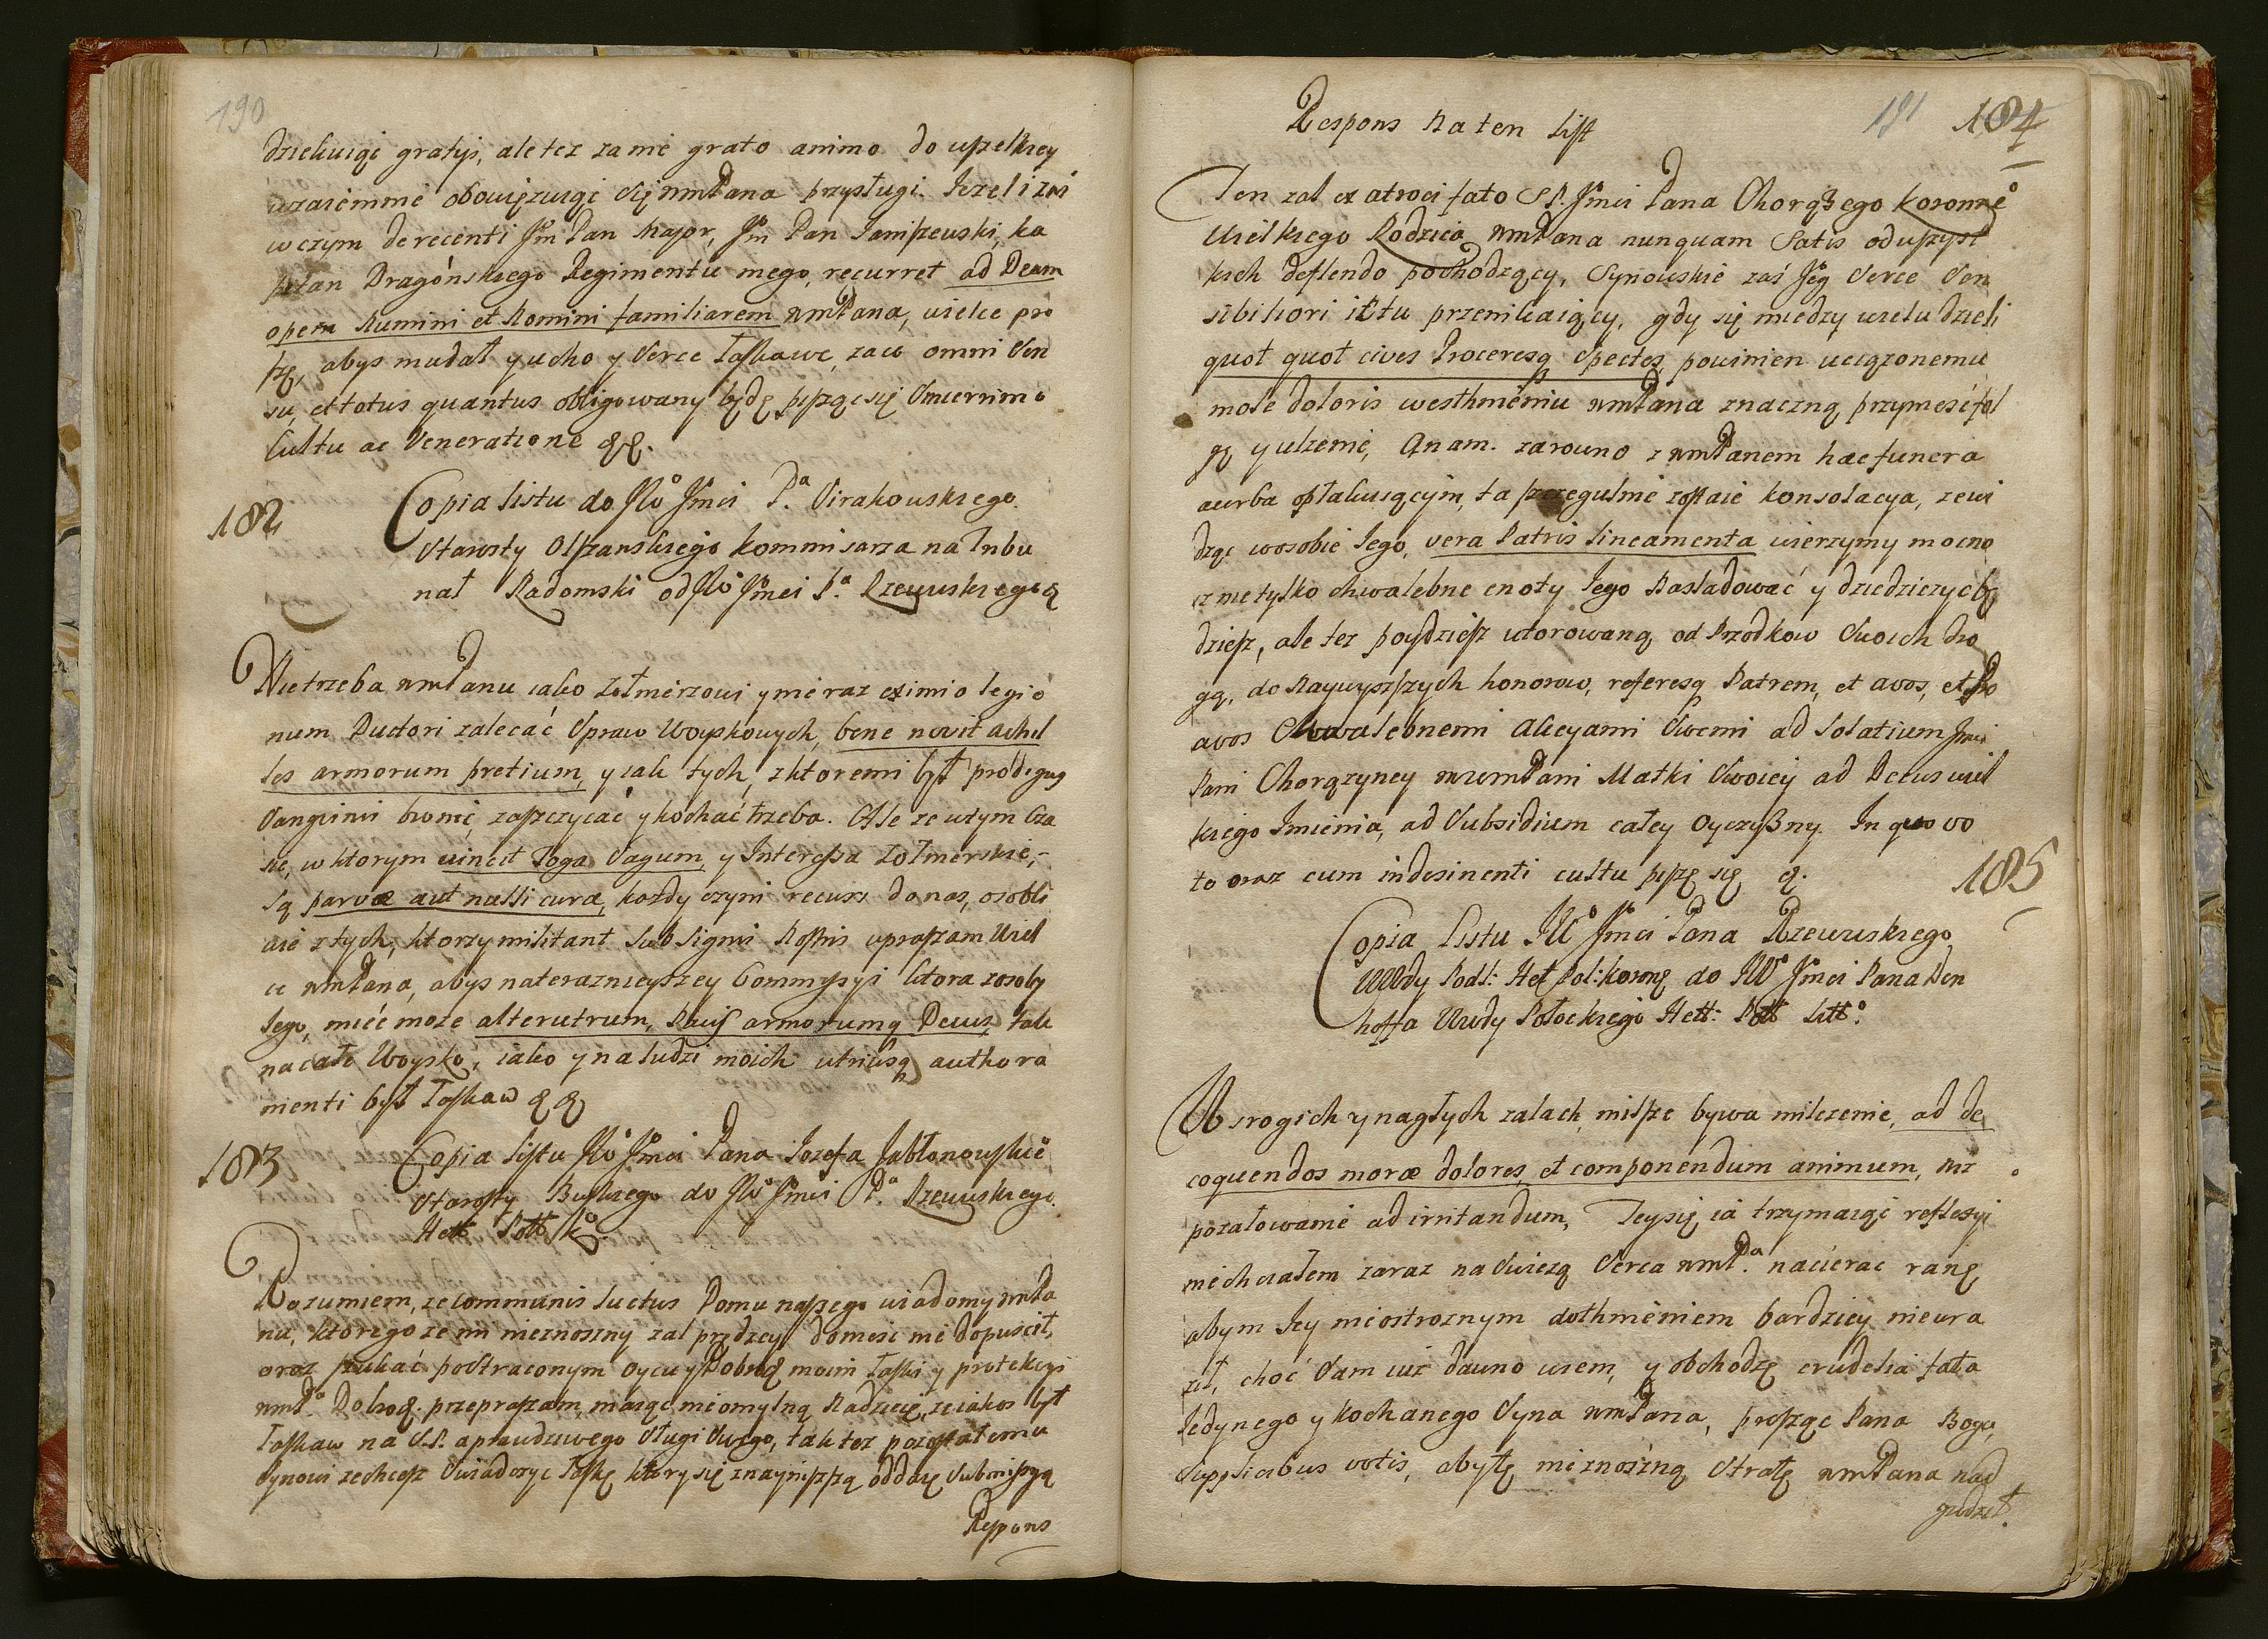 190
dziękuiąc gratyi, ale tez za mie grato animo do wszelkiey
wzaiemnie obowięzuiąc się wmPana przysługi. Iezeli zas
w czym de recenti Jm Pan Major, Jm Pan Janiszewski, ka
pitan Dragonskiego Regimentu mego, recurret ad Deam
opem Numini et Nomini familiarem wmPana, wielce pro
szę, abys mu dał y ucho y Serce łaskawe, za co omni Sen
su, et totus quantus obligowany będę pisząc się Sincerrimo
Cultu ac Veneratione &&.
182
Copia listu do JWo Jmci Pa Sirakowskiego
Starosty Olszanskiego Kommisarza na Trybu
nał Radomski od JWo Jmci Pa Rzewuskiego &
Nie trzeba wmPanu iako Zołnierzowi y nie raz eximio legio
num Ductori zalecać Spraw Woyskowych, bene novit Achil
les armorum pretium, y iak tych, z ktoremi był prodigus
Sanguinis bronić, zaszczycać y kochać trzeba. Ale ze w tym Cza
sie, w ktorym vincit Toga Sagum, y Interessa Zołnierskie,
są parvæ aut nulli curæ, kozdy czyni recurs do nas, osobli
wie z tych, ktorzy militant sub Signis Nostris upraszam Wiel
ce wmPana, abys na teraznieyszey Commissyi ktora z osoby
Iego, mieć moze alterutrum, Pacis armorumq Decus, tak
na całe Woysko, iako y na ludzi moich utriusq authora
menti był łaskaw &&
183
Copia listu JWo Jmci Pana Iozefa Jabłonowskieo
Starosty Buskiego do JWo Jmci Pa Rzewuskiego
Hett: Poll: Ko
Rozumiem, ze communis luctus Domu naszego wiadomy wmPa
nu, ktorego ze mi nieznosny zal prędzey donieść nie dopuscił,
oraz szukać po straconym Oycu y Dobrod: moim łaski y protekcyi
wmPa Dobrod: przepraszam, maiąc nieomylną Nadzieię, ze iakos był
łaskaw na S.P. a prawdziwego Sługi Swego, tak tez pozostałemu
Synowi zechcesz Swiadczyć łaskę ktory się z nayniszszą oddaię Submissyą
Respons
Respons na ten list
191 184
Ten zal ex atroci fato S.P. Jmci Pana Chorązego Koronneo
Wielkiego Rodzica wmPana nunquam Satis od wszyst
kich deflendo pochodzący, Synowskie zaś Jeg Serce Sen
sibiliori ictu przenikaiący, gdy się miedzy wielu dzieli
quot quot cives Proceresq Spectes, powinien uciązonemu
mole doloris westchnieniu wmPana znaczną przyniesć fol
gę y ulzenie, Q nam. zarowno z wmPanem hæc funera
acerba opłakuiącym, ta szczegulnie zostaie konsolacya, ze wi
dząc w osobie Jego, vera Patris lineamenta wierzymy mocno
ze nie tylko chwalebne cnoty Jego Nasladować y dziedziczyć bę
dziesz, ale tez poydziesz utorowaną od Przodkow Swoich dro
gą, do Naywyszszych honorow, referesq Patrem, et avos, et Pro
avos Chwalebnemi Akcyami Swemi ad Solatium Jmci
Pani Chorązyney mwmPani Matki Swoiey ad Decus wiel
kiego Imienia, ad Subsidium całey Oyczyzny. In quo vo
to oraz cum indesinenti cultu piszę się &.
185
Copia Listu JWo Jmci Pana Rzewuskiego
WWdy Podl: Het Pol: Koronneo do JWo Jmci Pana Den
hoffa Wwdy Połockiego Hett: Poll Litt:o
W srogich y nagłych zalach, milsze bywa milczenie, ad de
coquendos moræ dolores, et componendum animum, niz
pozałowanie ad irritandum, Tey się ia trzymaiąc reflexyi
nie chciałem zaraz na Swiezą Serca wmPa nacierać ranę,
abym Iey nieostroznym dotchnieniem bardziey nie ura
ził, choć Sam iuz dawno wiem, y obchodzę crudelia fata
Iedynego y kochanego Syna wmPana, prosząc Pana Boga,
Supplicibus votis, aby tę nieznośną Stratę wmPana nad
grodził.